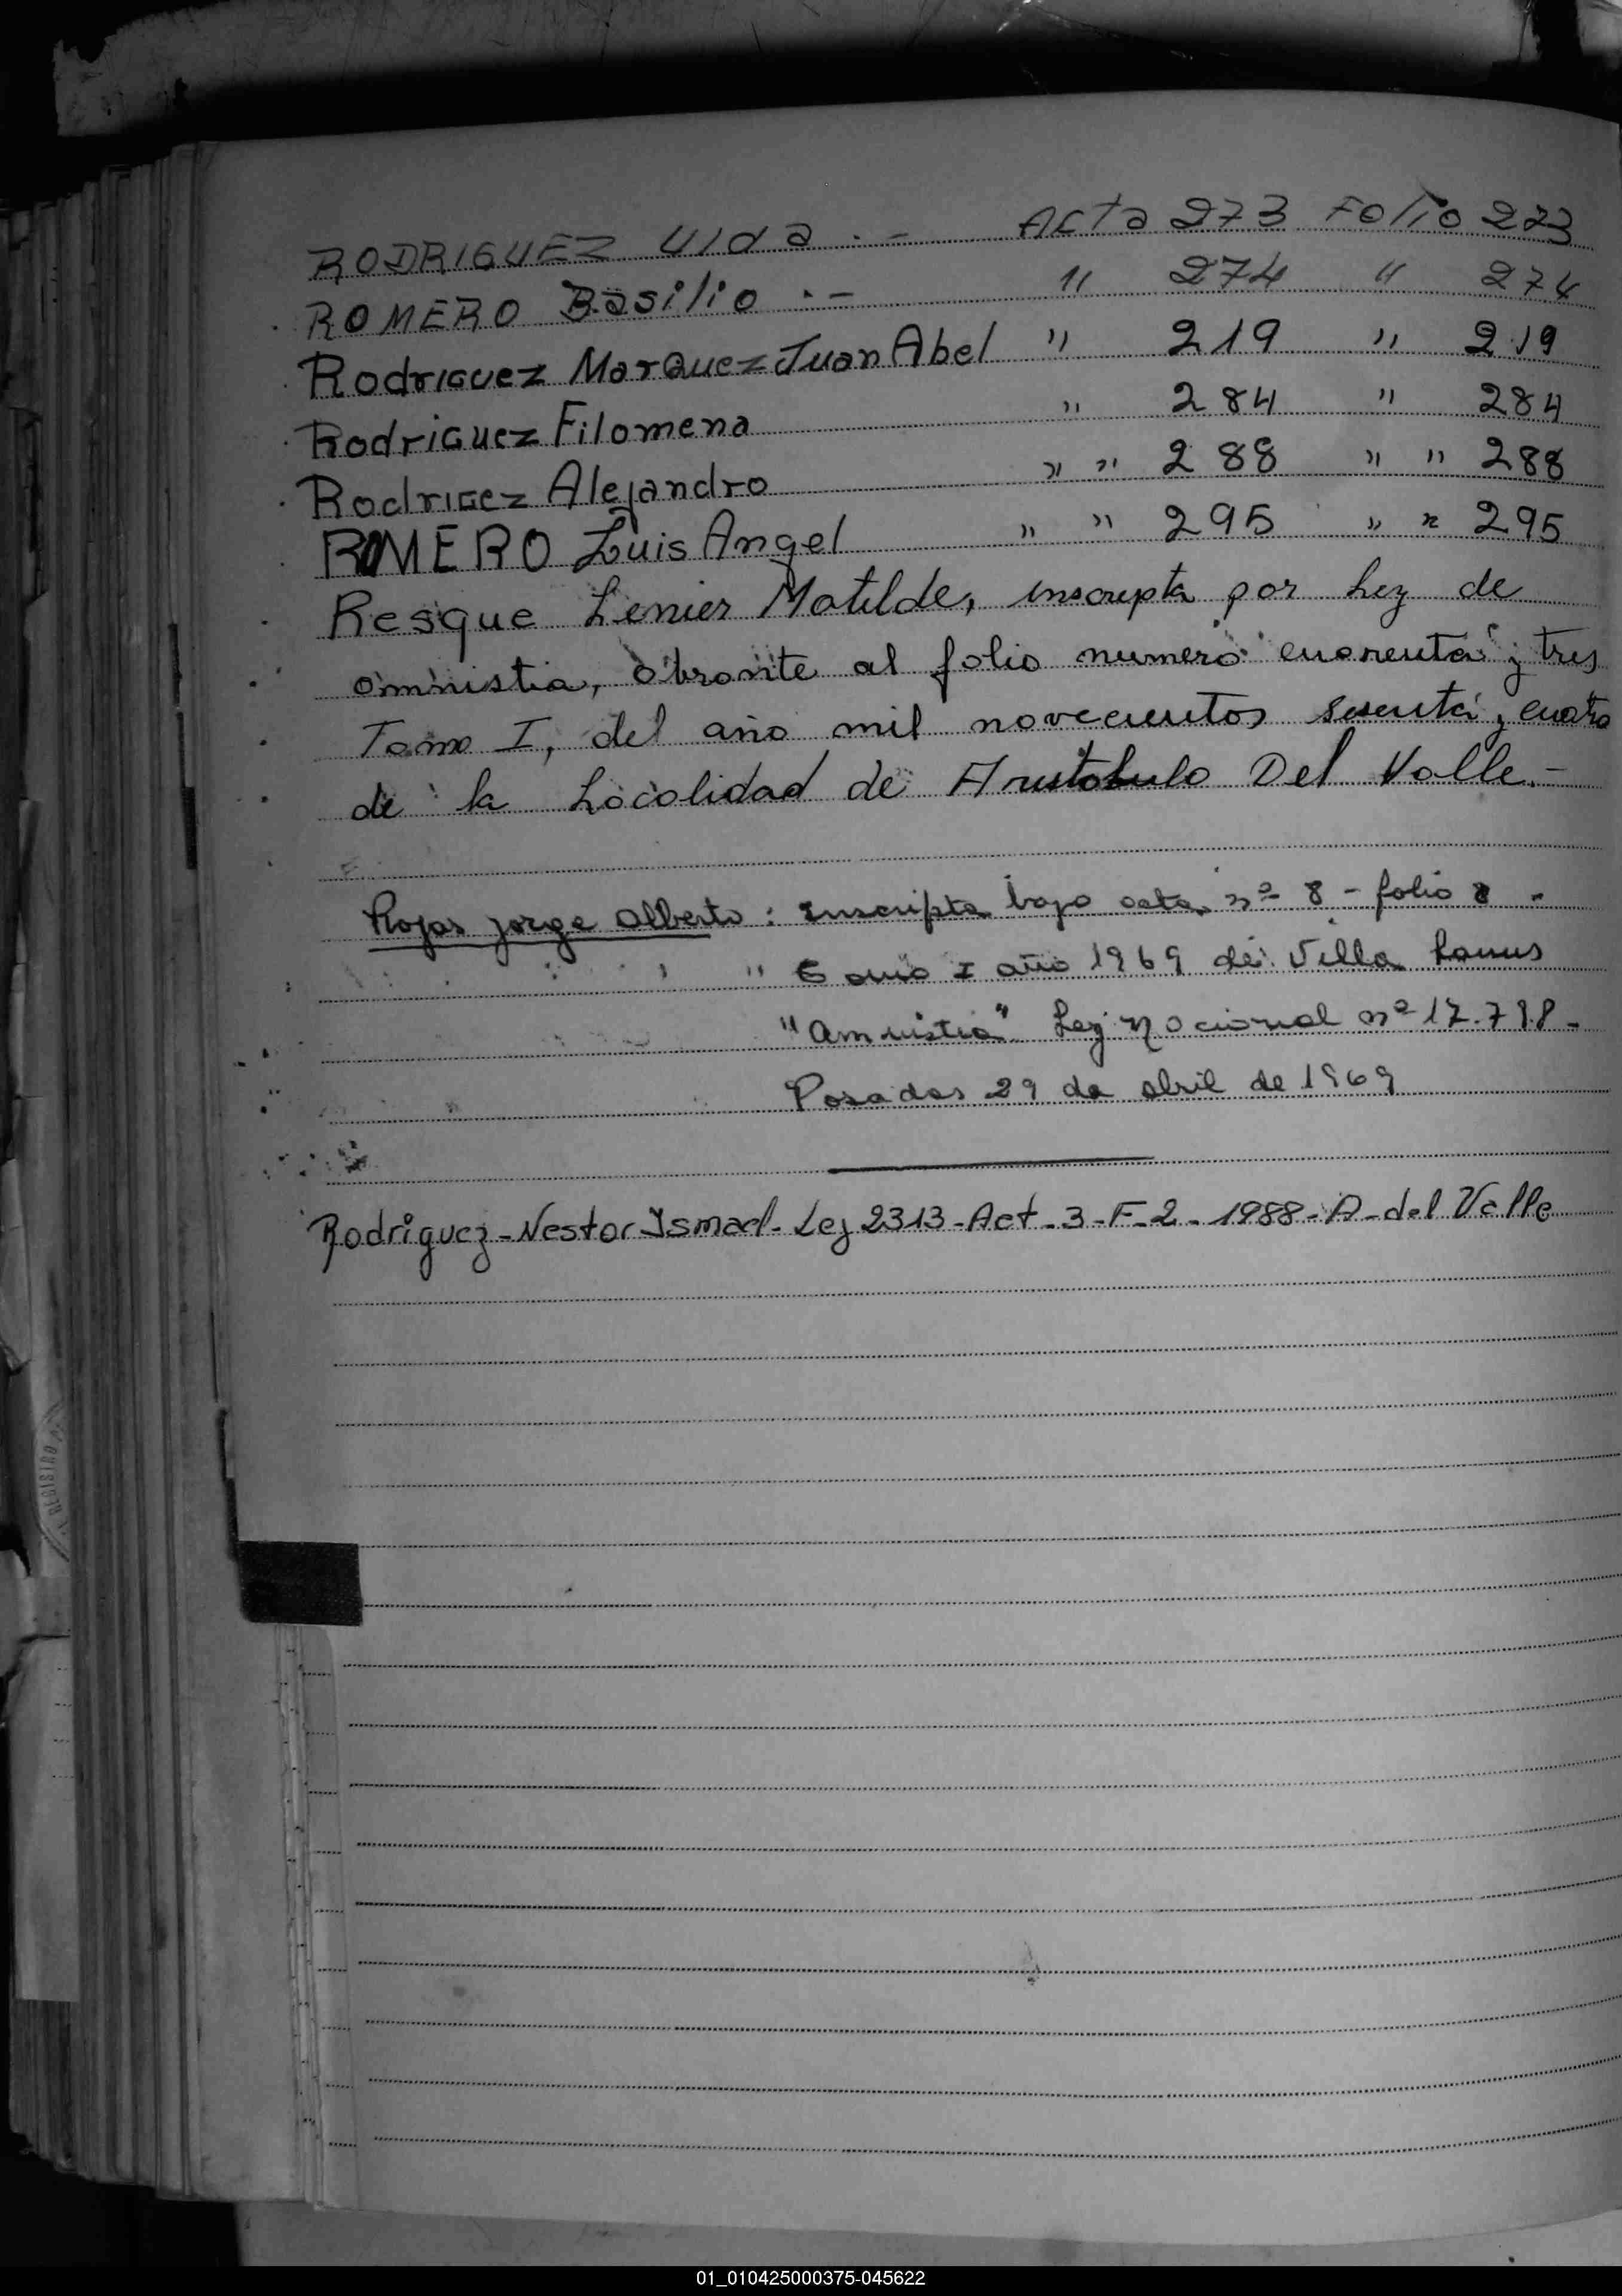 RODRIGUEZ Ulda .- Acta 273 Folio 273
ROMERO Basilio .- " 274 " 274
Rodriguez Marquez Juan Abel " 219 " 219
Rodriguez Filomena " 284 " 284
Rodrigez Alejandro " " 288 " " 288
ROMERO Luis Angel " " 295 " " 295
Resque Lenier Matilde, inscripta por Ley de
omnistia, obrante al folio numero cuarenta y tres
Tomo I, del año mil novecientos sesenta y cuatro
de la Localidad de Aristobulo Del Valle.-
Rojas Jorge Alberto: Inscripta bajo acta nº 8 - folio 8 -
" Tomo I año 1969 de Villa Lanus
"Amnistia" Ley Nacional nº 17.798-
Posadas 29 de abril de 1969
Rodriguez-Nestor Ismael- Ley 2313-Act-3-F-2-1988-A-del Valle
REGISTRO
01_010425000375-045622